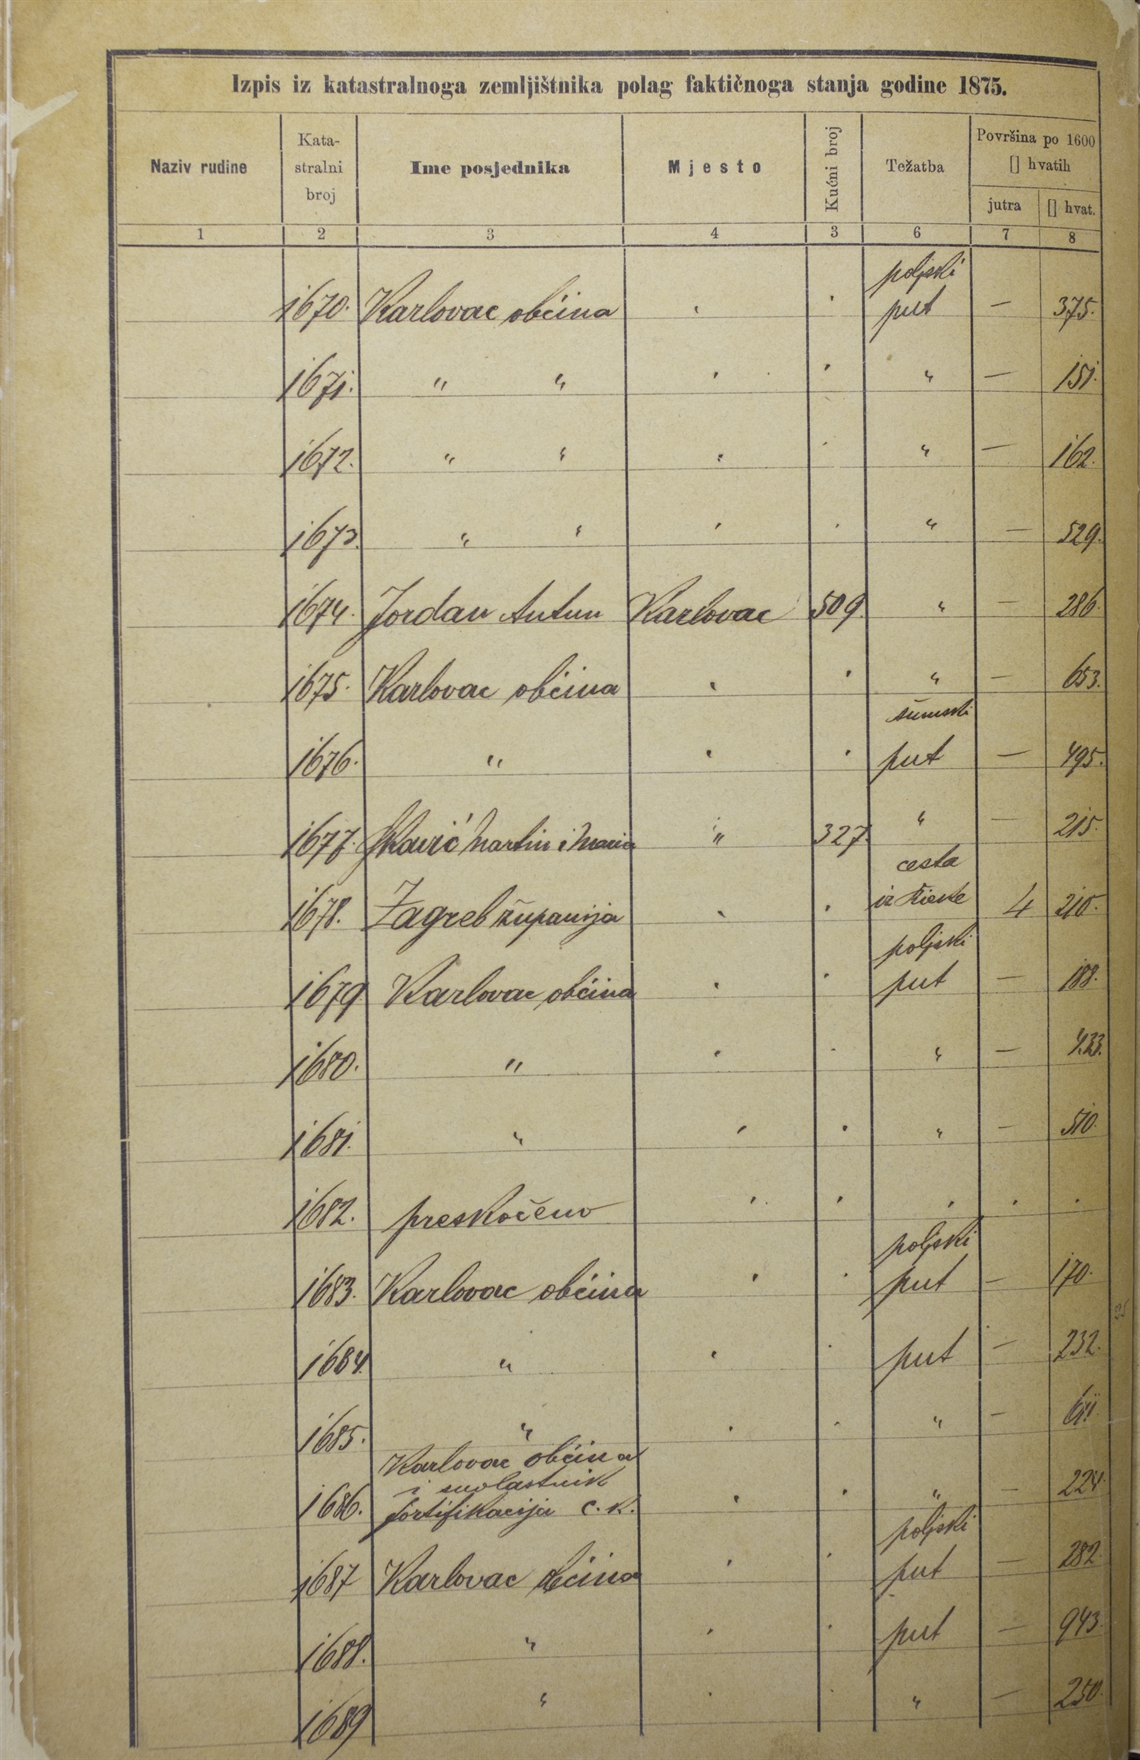 Izpis iz katastralnoga zemljištnika polag faktičnoga stanja godine 1875.
Naziv rudine Kata-stralni broj Ime posjednika Mjesto Kućni broj Težatba Površina po 1600 [] hvatih
jutra [] hvat.
1 2 3 4 3 6 7 8
poljski
1670. Karlovac občina put — 375.
1671. " " " — 151.
1672. " " " — 162.
1673. " " " — 529.
1674. Jordan Antun Karlovac 509. " — 286.
1675. Karlovac občina " — 653.
šumski
1676. " put — 495.
1677. Martin i " 327. " — 215.
cesta
1678. Zagreb županija 4 210.
poljski
1679 Karlovac občina put — 188.
1680. " " — 433.
1681. " " — 510.
1682. preskočeno
poljski
1683. Karlovac občina put — 170.
1684. " put — 232.
1685. " " —
Karlovac občina
i suvlastnik
1686. fortifikacija c. k. " — 224.
poljski
1687 Karlovac občina put — 282.
1688. " put — 943.
1689 " " — 250.